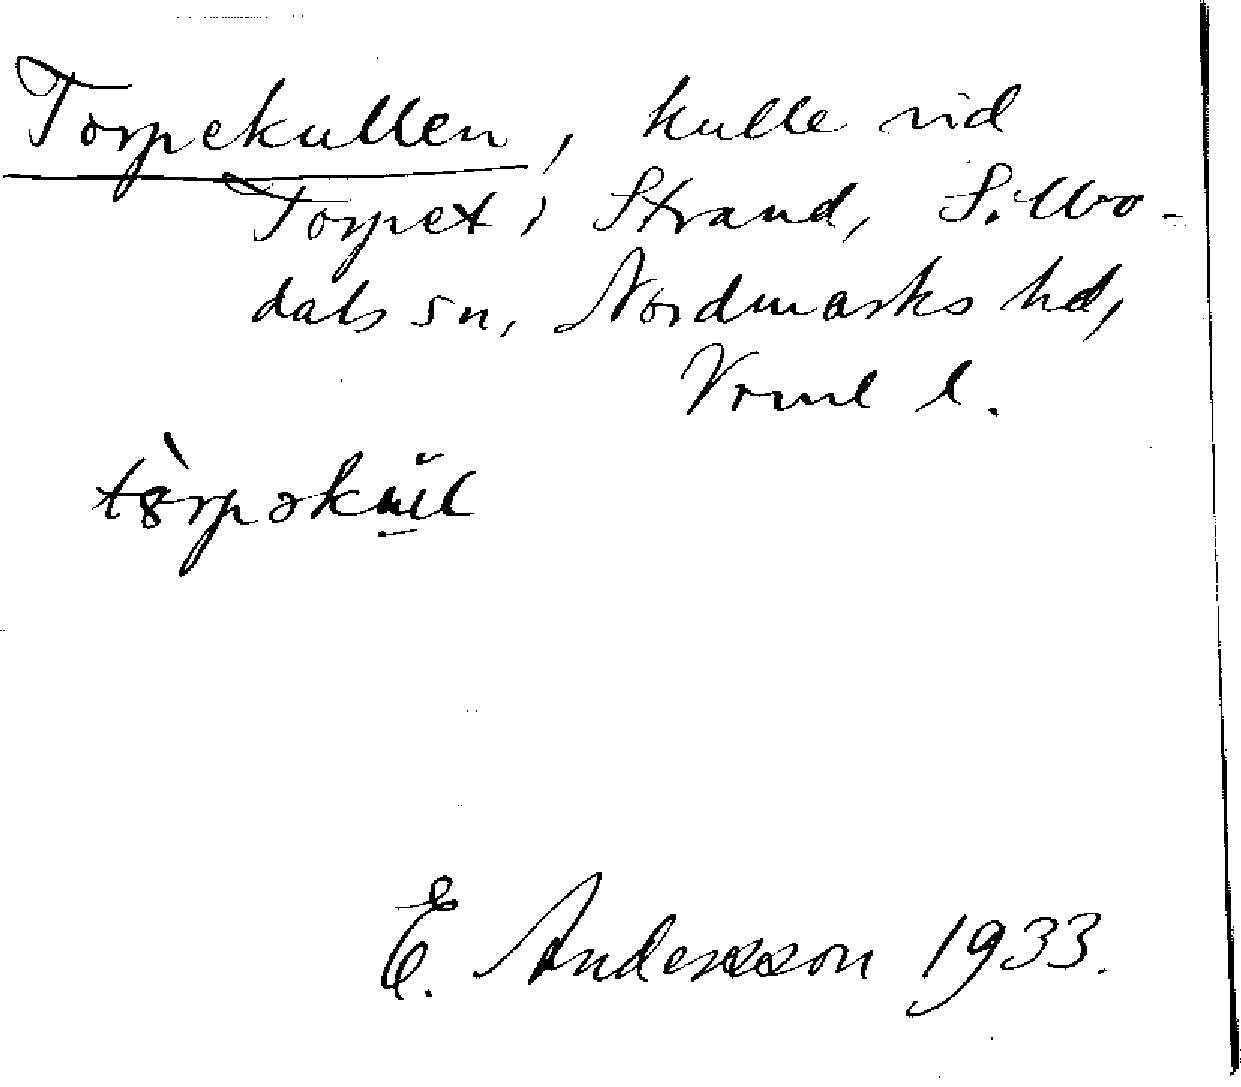 Torpekullen, kulle vid
Torpet i Strand, Sillbo-
dals sn, Nordmarks hd,
Vrml l.
E. Andersson 1933.